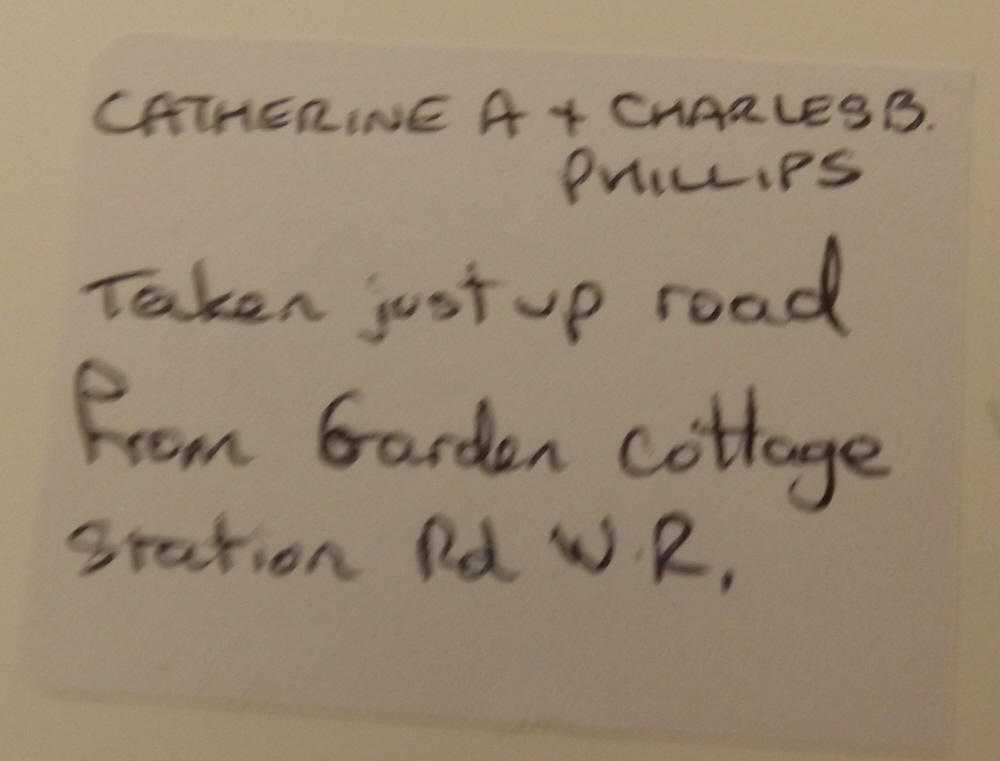 CATHERINE A + CHARLES B.
PHILLIPS
Taken just up road
from Garden cottage
Station Rd W.R.